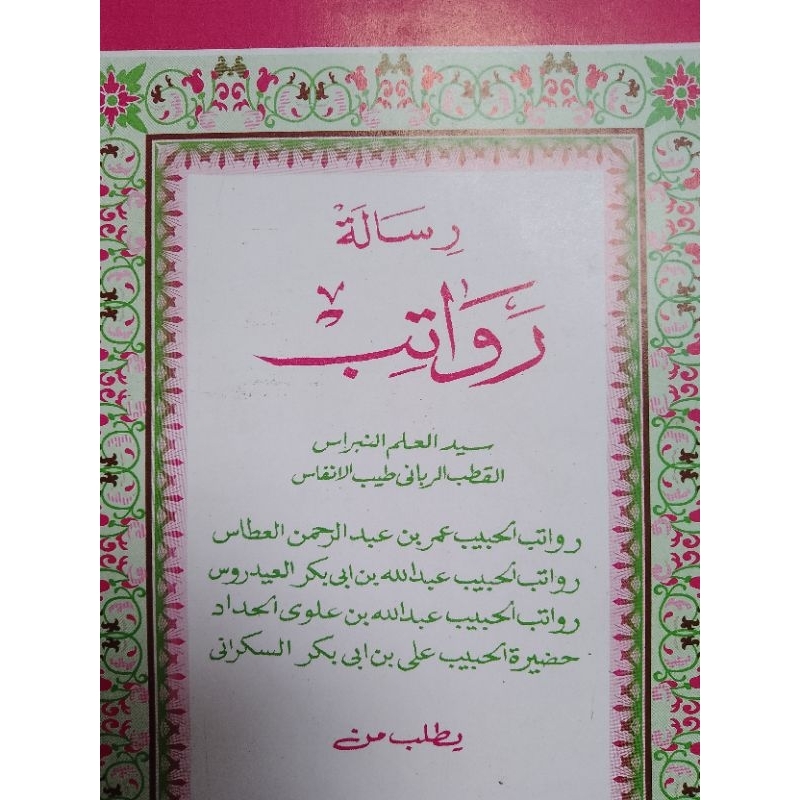 رِسَالَةْ
رَوَاتِبْ
سيد العلم النبراس
القطب الربانى طيب الانفاس
رواتب الحبيب عمر بن عبد الرحمن العطاس
رواتب الحبيب عبد الله بن ابى بكر العيدروس
رواتب الحبيب عبد الله بن علوى الحداد
حضيرة الحبيب على بن ابى بكر السكرانى
يطلب من